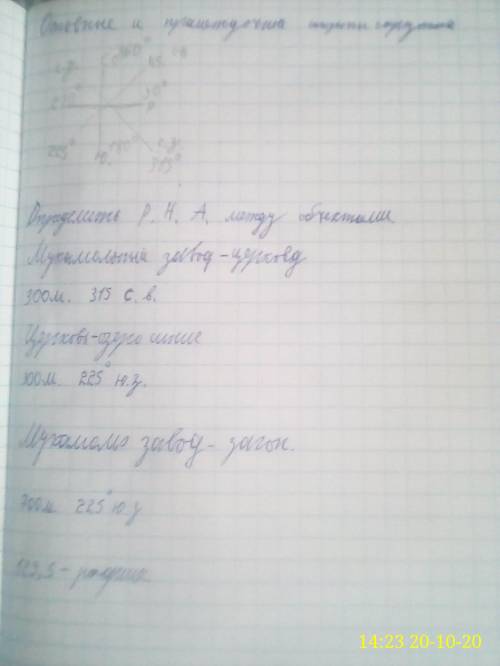 Основные и промежуточные стороны горизонта
360°
С
с.в.
270°
90°
225°
Ю
180°
315°
Определить Р. Н. А. между объектами
Мукамольный завод-церковь
300м. 315 с.в.
Церковь-озеро синие
225° ю.з.
завод- загон.
700м. 225° ю.з
14:23 20-10-20